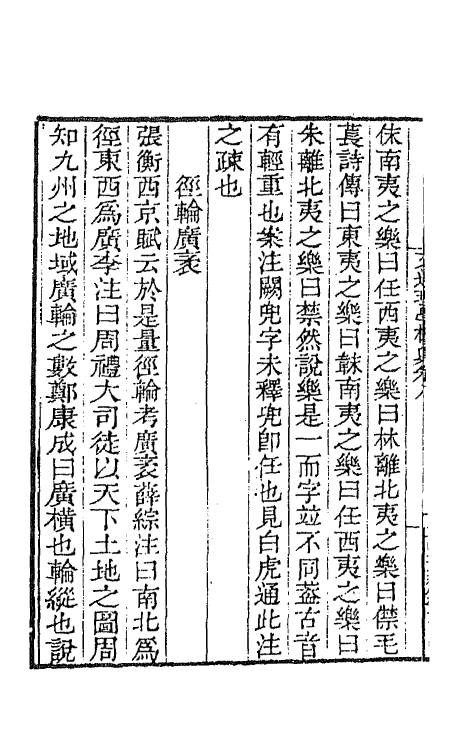 佅南夷之樂曰任西夷之樂曰林離北夷之樂曰僸毛
萇詩傳曰東夷之樂曰韎南夷之樂曰任西夷之樂曰
朱離北夷之樂曰禁然說樂是一而字並不同蓋古音
有輕重也案注闕兜字未釋兜卽任也見白虎通此注
之疎也
徑輪廣袤
張衡西京賦云於是量徑輪考廣袤薛綜注曰南北爲
徑東西爲廣李注曰周禮大司徒以天下土地之圖周
知九州之地域廣輪之數鄭康成曰廣橫也輪縱也說